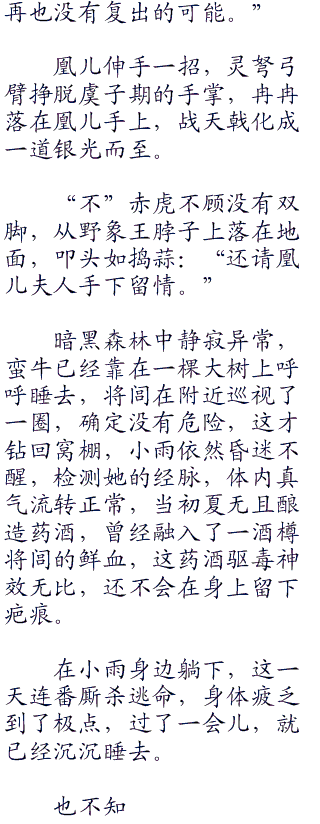 再也没有复出的可能。”
凰儿伸手一招，灵弩弓
臂挣脱虞子期的手掌，冉冉
落在凰儿手上，战天戟化成
一道银光而至。
“不”赤虎不顾没有双
脚，从野象王脖子上落在地
面，叩头如捣蒜：“还请凰
儿夫人手下留情。”
暗黑森林中静寂异常，
蛮牛已经靠在一棵大树上呼
呼睡去，将闾在附近巡视了
一圈，确定没有危险，这才
钻回窝棚，小雨依然昏迷不
醒，检测她的经脉，体内真
气流转正常，当初夏无且酿
造药酒，曾经融入了一酒樽
将闾的鲜血，这药酒驱毒神
效无比，还不会在身上留下
疤痕。
在小雨身边躺下，这一
天连番厮杀逃命，身体疲乏
到了极点，过了一会儿，就
已经沉沉睡去。
也不知